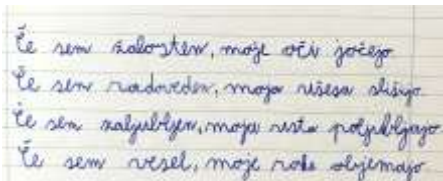 Če sem žalosten, moje oči jočejo.
Če sem radoveden, moja ušesa slišijo.
Če sem zaljubljen, moja usta poljubljajo.
Če sem vesel, moje roke objemajo.